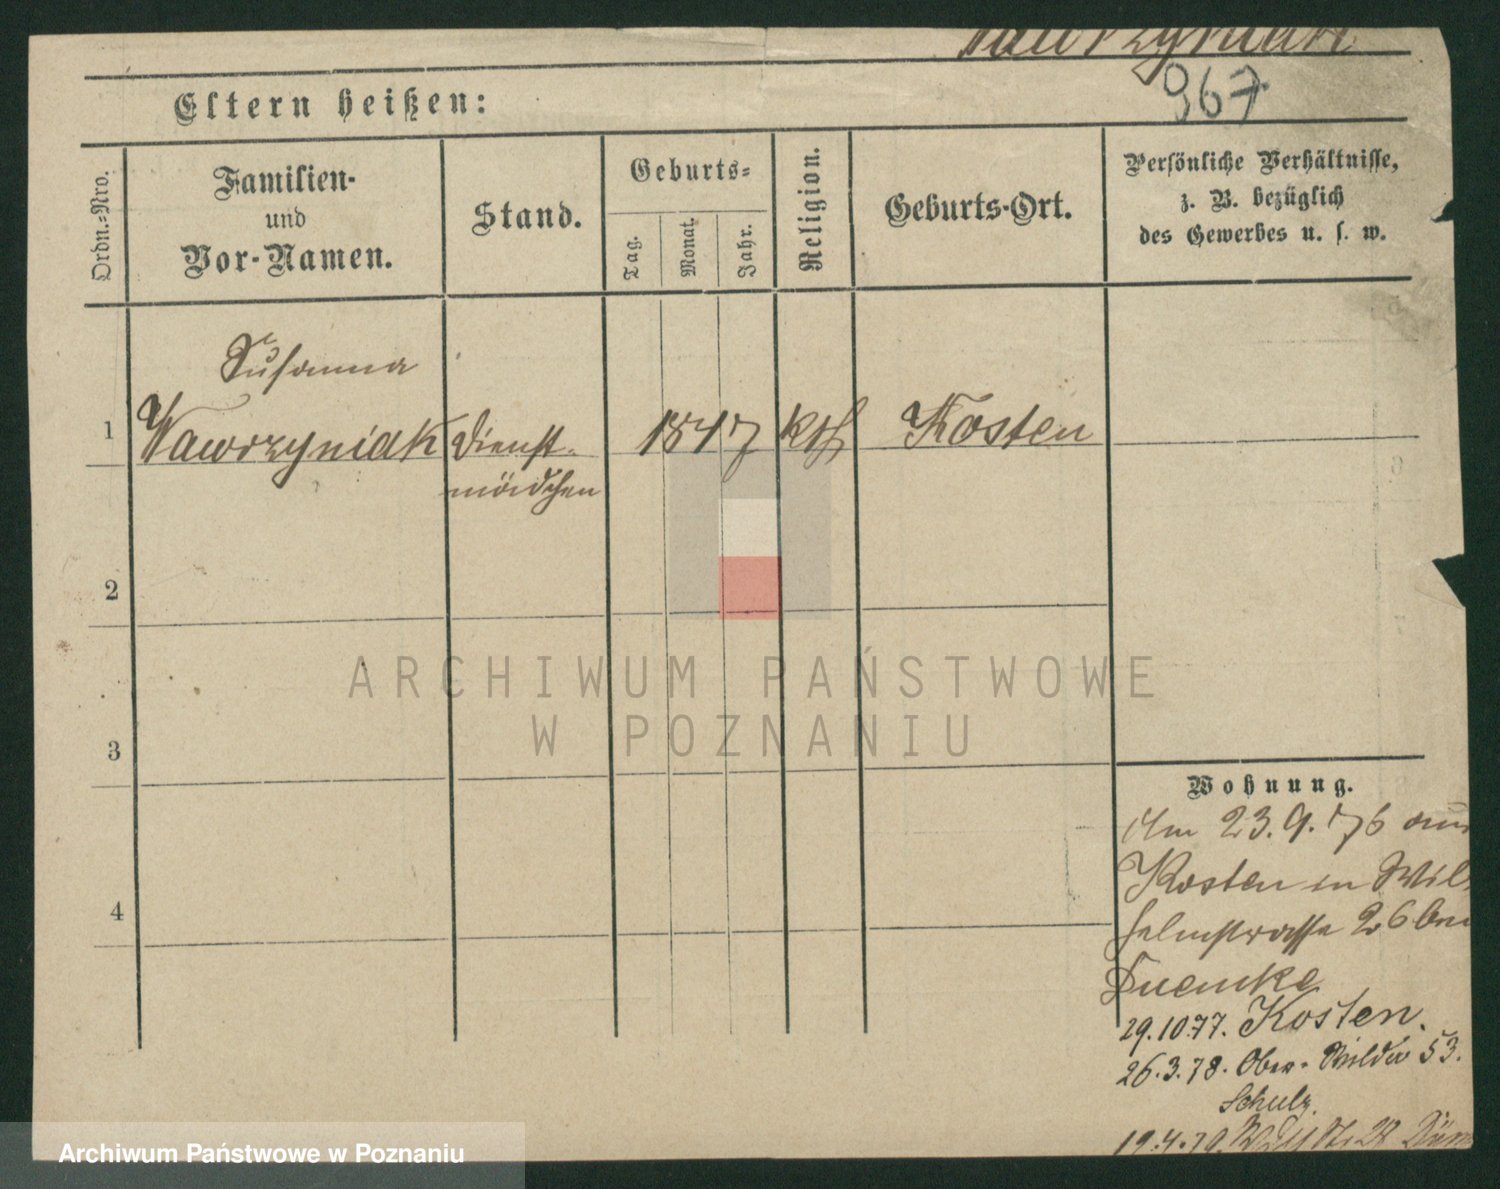 Wawrzyniak
967
Eltern heißen:
Ordn.-Nro.
Familien-
und
Vor-Namen.
Stand.
Geburts-
Tag.
Monat.
Jahr.
Religion.
Geburts-Ort.
Persönliche Verhältnisse,
z. B. bezüglich
des Gewerbes u. s. w.
Susanna
1 Wawrzyniak Dienst- 1847 kth Kosten
mädchen
2
3
4
ARCHIWUM PAŃSTWOWE
W POZNANIU
Wohnung.
Am 23.9.76 aus
Kosten in Wil
helmstrasse 26 bei
29.10.77. Kosten.
26.3.78. Ober- 53.
Schulz.
19.4.79. 28
Archiwum Państwowe w Poznaniu